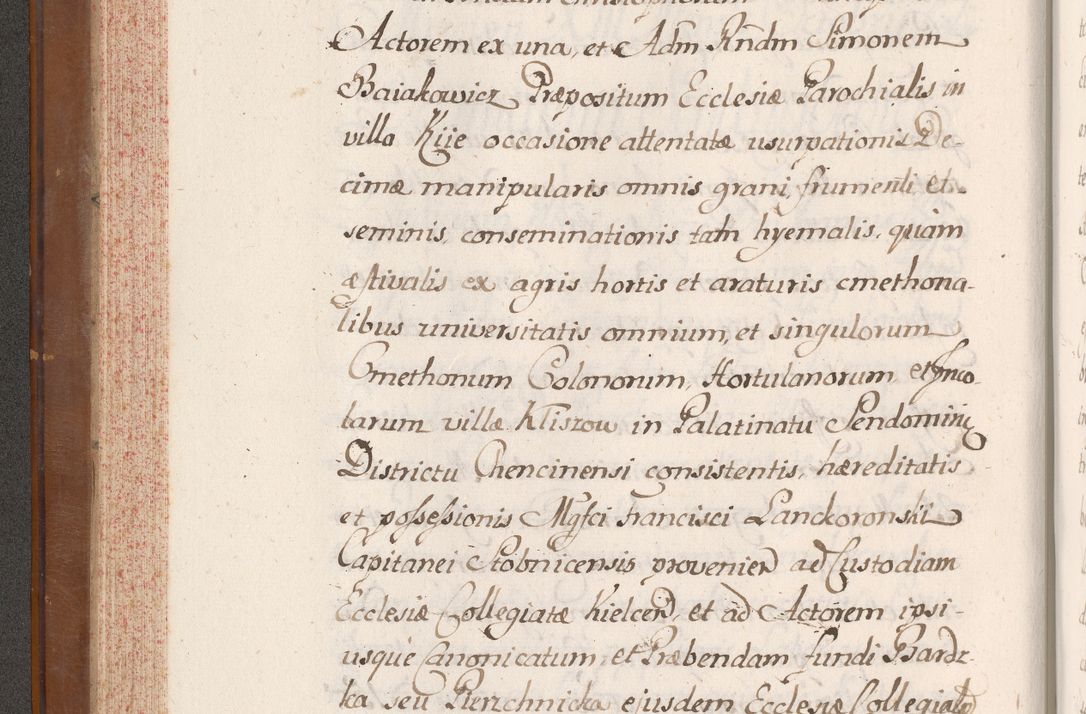 Actorem ex una, et Adm Rndm Simonem
Baiakowicz Præpositum Ecclesiæ Parochialis in
villa Kije occasione attentatæ usurpationis De-
cimæ manipularis omnis grani, frumenti et
seminis, conseminationis tam hyemalis, quam
æstivalis ex agris hortis et araturis cmethona-
libus universitatis omnium, et singulorum
Cmethonum Colonorum, Hortulanorum, et Inco-
larum villæ Kliszow in Palatinatu Sendomiri:
Districtu Chencinensi consistentis, hæreditatis
et possessionis Mgfci Francisci Lanckoronskii
Capitanei Stobnicensis provenien ad Custodiam
Ecclesiæ Collegiatæ Kielcen, et ad Actorem ipsi-
usque Canonicatum, et Præbendam fundi Bardz-
ka seu Pierzchnicka ejusdem Ecclesiæ Collegiatæ